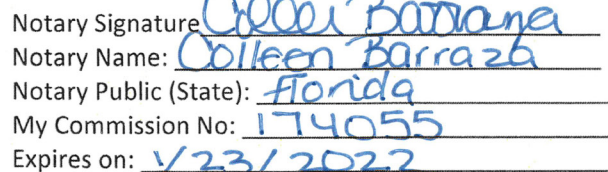 Notary Signature Colleen Barraza
Notary Name: Colleen Barraza
Notary Public (State): Florida
My Commission No: 174055
Expires on: 1/23/2022